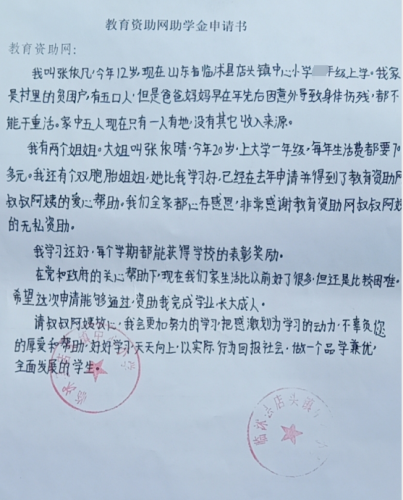 教育资助网助学金申请书
教育资助网:
我叫张依凡,今年12岁,现在山东省临沭县店头镇中心小学 年级上学。我家
是村里的贫困户,有五口人,但是爸爸妈妈早在早先后因意外导致身体伤残,都不
能干重活。家中五人现在只有一人有地,没有其它收入来源。
我有两个姐姐。大姐叫张依晴,今年20岁,上大学一年级,每年生活费都要
多元。我还有个双胞胎姐姐,她比我学习好,已经在去年申请并得到了教育资助网
叔叔阿姨的爱心帮助。我们全家都心存感恩,非常感谢教育资助网叔叔阿姨
的无私资助。
我学习还好,每个学期都能获得学校的表彰奖励。
在党和政府的关心帮助下,现在我们家生活比以前好了很多,但还是比较困难。
希望这次申请能够通过,资助我完成学业,长大成人。
请叔叔阿姨放心,我会更加努力的学习,把感激划为学习的动力,不辜负您
的厚爱和帮助,好好学习,天天向上,以实际行为回报社会,做一个品学兼优,
全面发展的学生。
临沭县店头镇